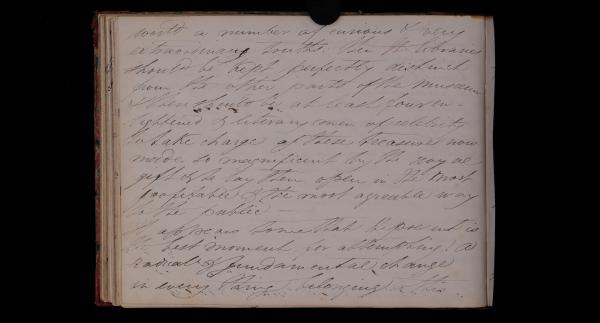 with a number of curious & very
extraordinary truths. Then the libraries
should be kept perfectly distinct
from the other parts of the museum
& there should be at least four en-
lightened & literary men of celebrity
to take charge of these treasures now
made so magnificent by the royal
gift & to lay them open in the most
profitable & the most agreeable way
to the public —
It appears to me that the present is
the best moment for attempting a
radical & fundamental change
in every thing belonging to this